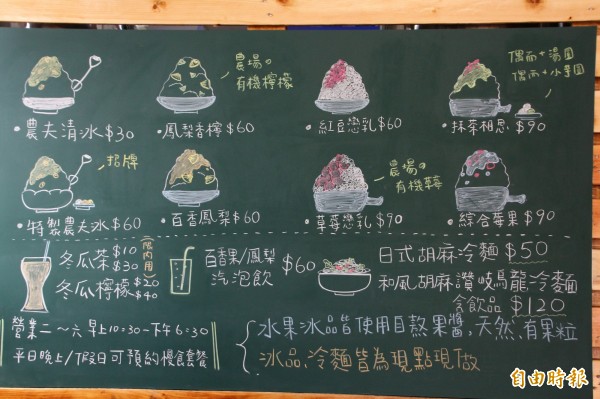 農場の
有機檸檬
偶而+湯圓
偶而+小芋圓
・農夫清冰$30
・鳳梨香檸$60
・紅豆戀乳$60
・抹茶相思$90
招牌
農場の
有機草莓
・特製農夫冰$60
・百香鳳梨$60
・草莓戀乳$90
・綜合莓果$90
冬瓜茶$10
$30
(限內用)
冬瓜檸檬$20
$40
百香果/鳳梨
汽泡飲
$60
日式胡麻冷麵$50
和風胡麻讚岐烏龍冷麵
含飲品$120
營業二~六早上10:30-下午6:30
平日晚上/假日可預約慢食套餐
水果冰品皆使用自熬果醬,天然、有果粒
冰品、冷麵皆為現點現做
自由時報